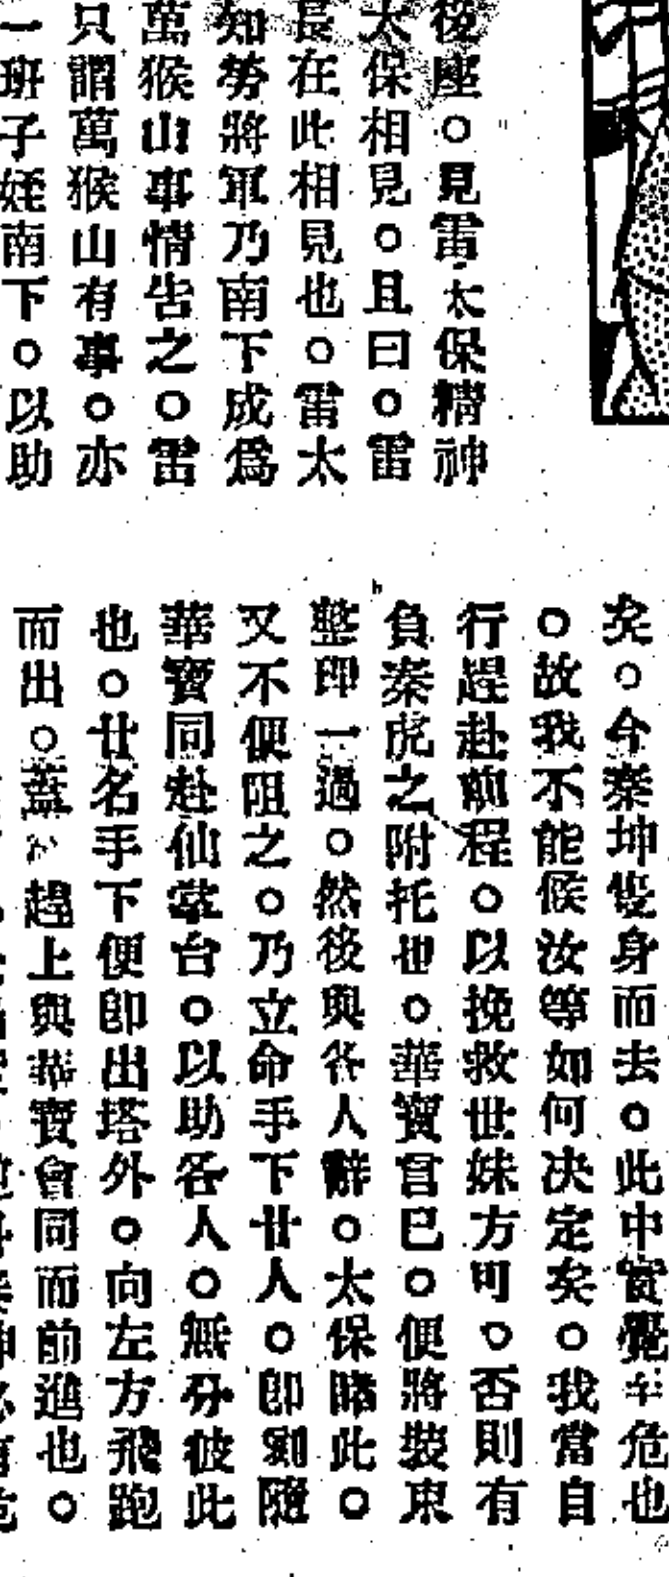 後座。見雷太保精神
太保相見。且曰。雷
長在此相見也。雷太
知勞將軍乃南下成爲
萬猴山事情告之。雷
只謂萬猴山有事。亦
一班子姪南下。以助
矣。今秦坤隻身而去。此中實覺危也
。故我不能候汝等如何決定矣。我當自
行趕赴前程。以挽救世妹方可。否則有
負秦虎之附托也。華寶言巳。便將裝束
整即一過。然後與各人辭。太保睹此。
又不便阻之。乃立命手下廿人。即刻隨
華寶同赴仙掌台。以助各人。無分彼此
也。廿名手下便即出塔外。向左方飛跑
而出。蓋趕上與華寶會同而前進也。